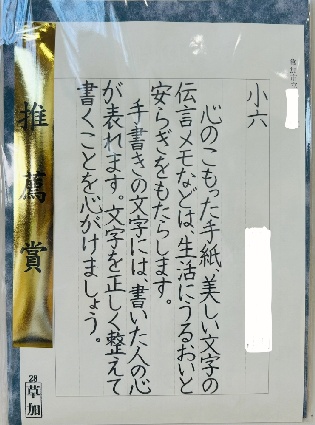 小六
心のこもった手紙、美しい文字の
伝言メモなどは、生活にうるおいと
安らぎをもたらします。
手書きの文字には、書いた人の心
が表れます。文字を正しく整えて
書くことを心がけましょう。
推薦賞
28
草加